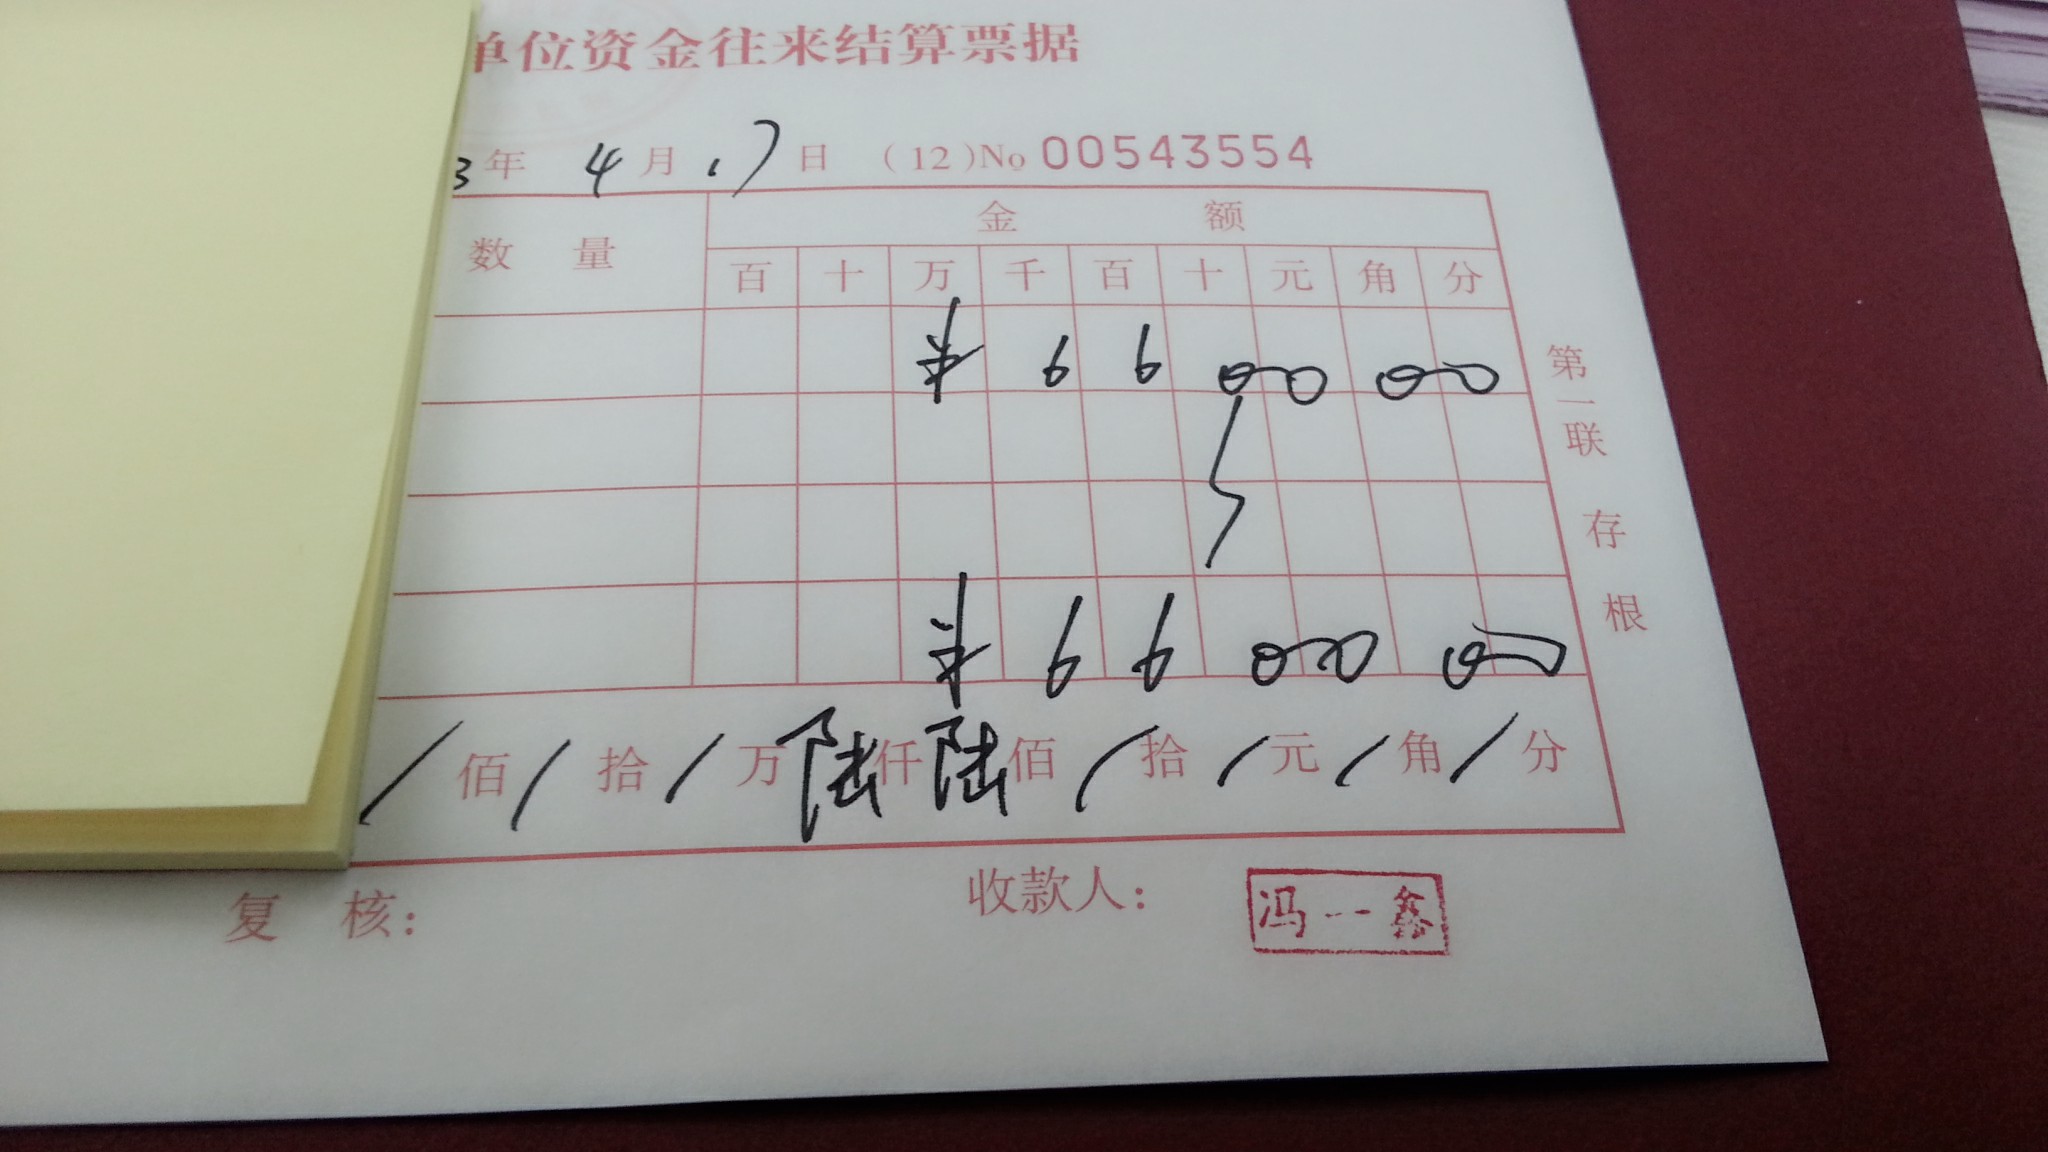 单位资金往来结算票据
3年 4月 17日 (12)No 00543554
数量 金额
百 十 万 千 百 十 元 角 分
¥ 6 6 0 0 0 0
¥ 6 6 0 0 0 0
/佰/拾/万陆仟陆佰/拾/元/角/分
第一联 存根
复核: 收款人: 冯一鑫